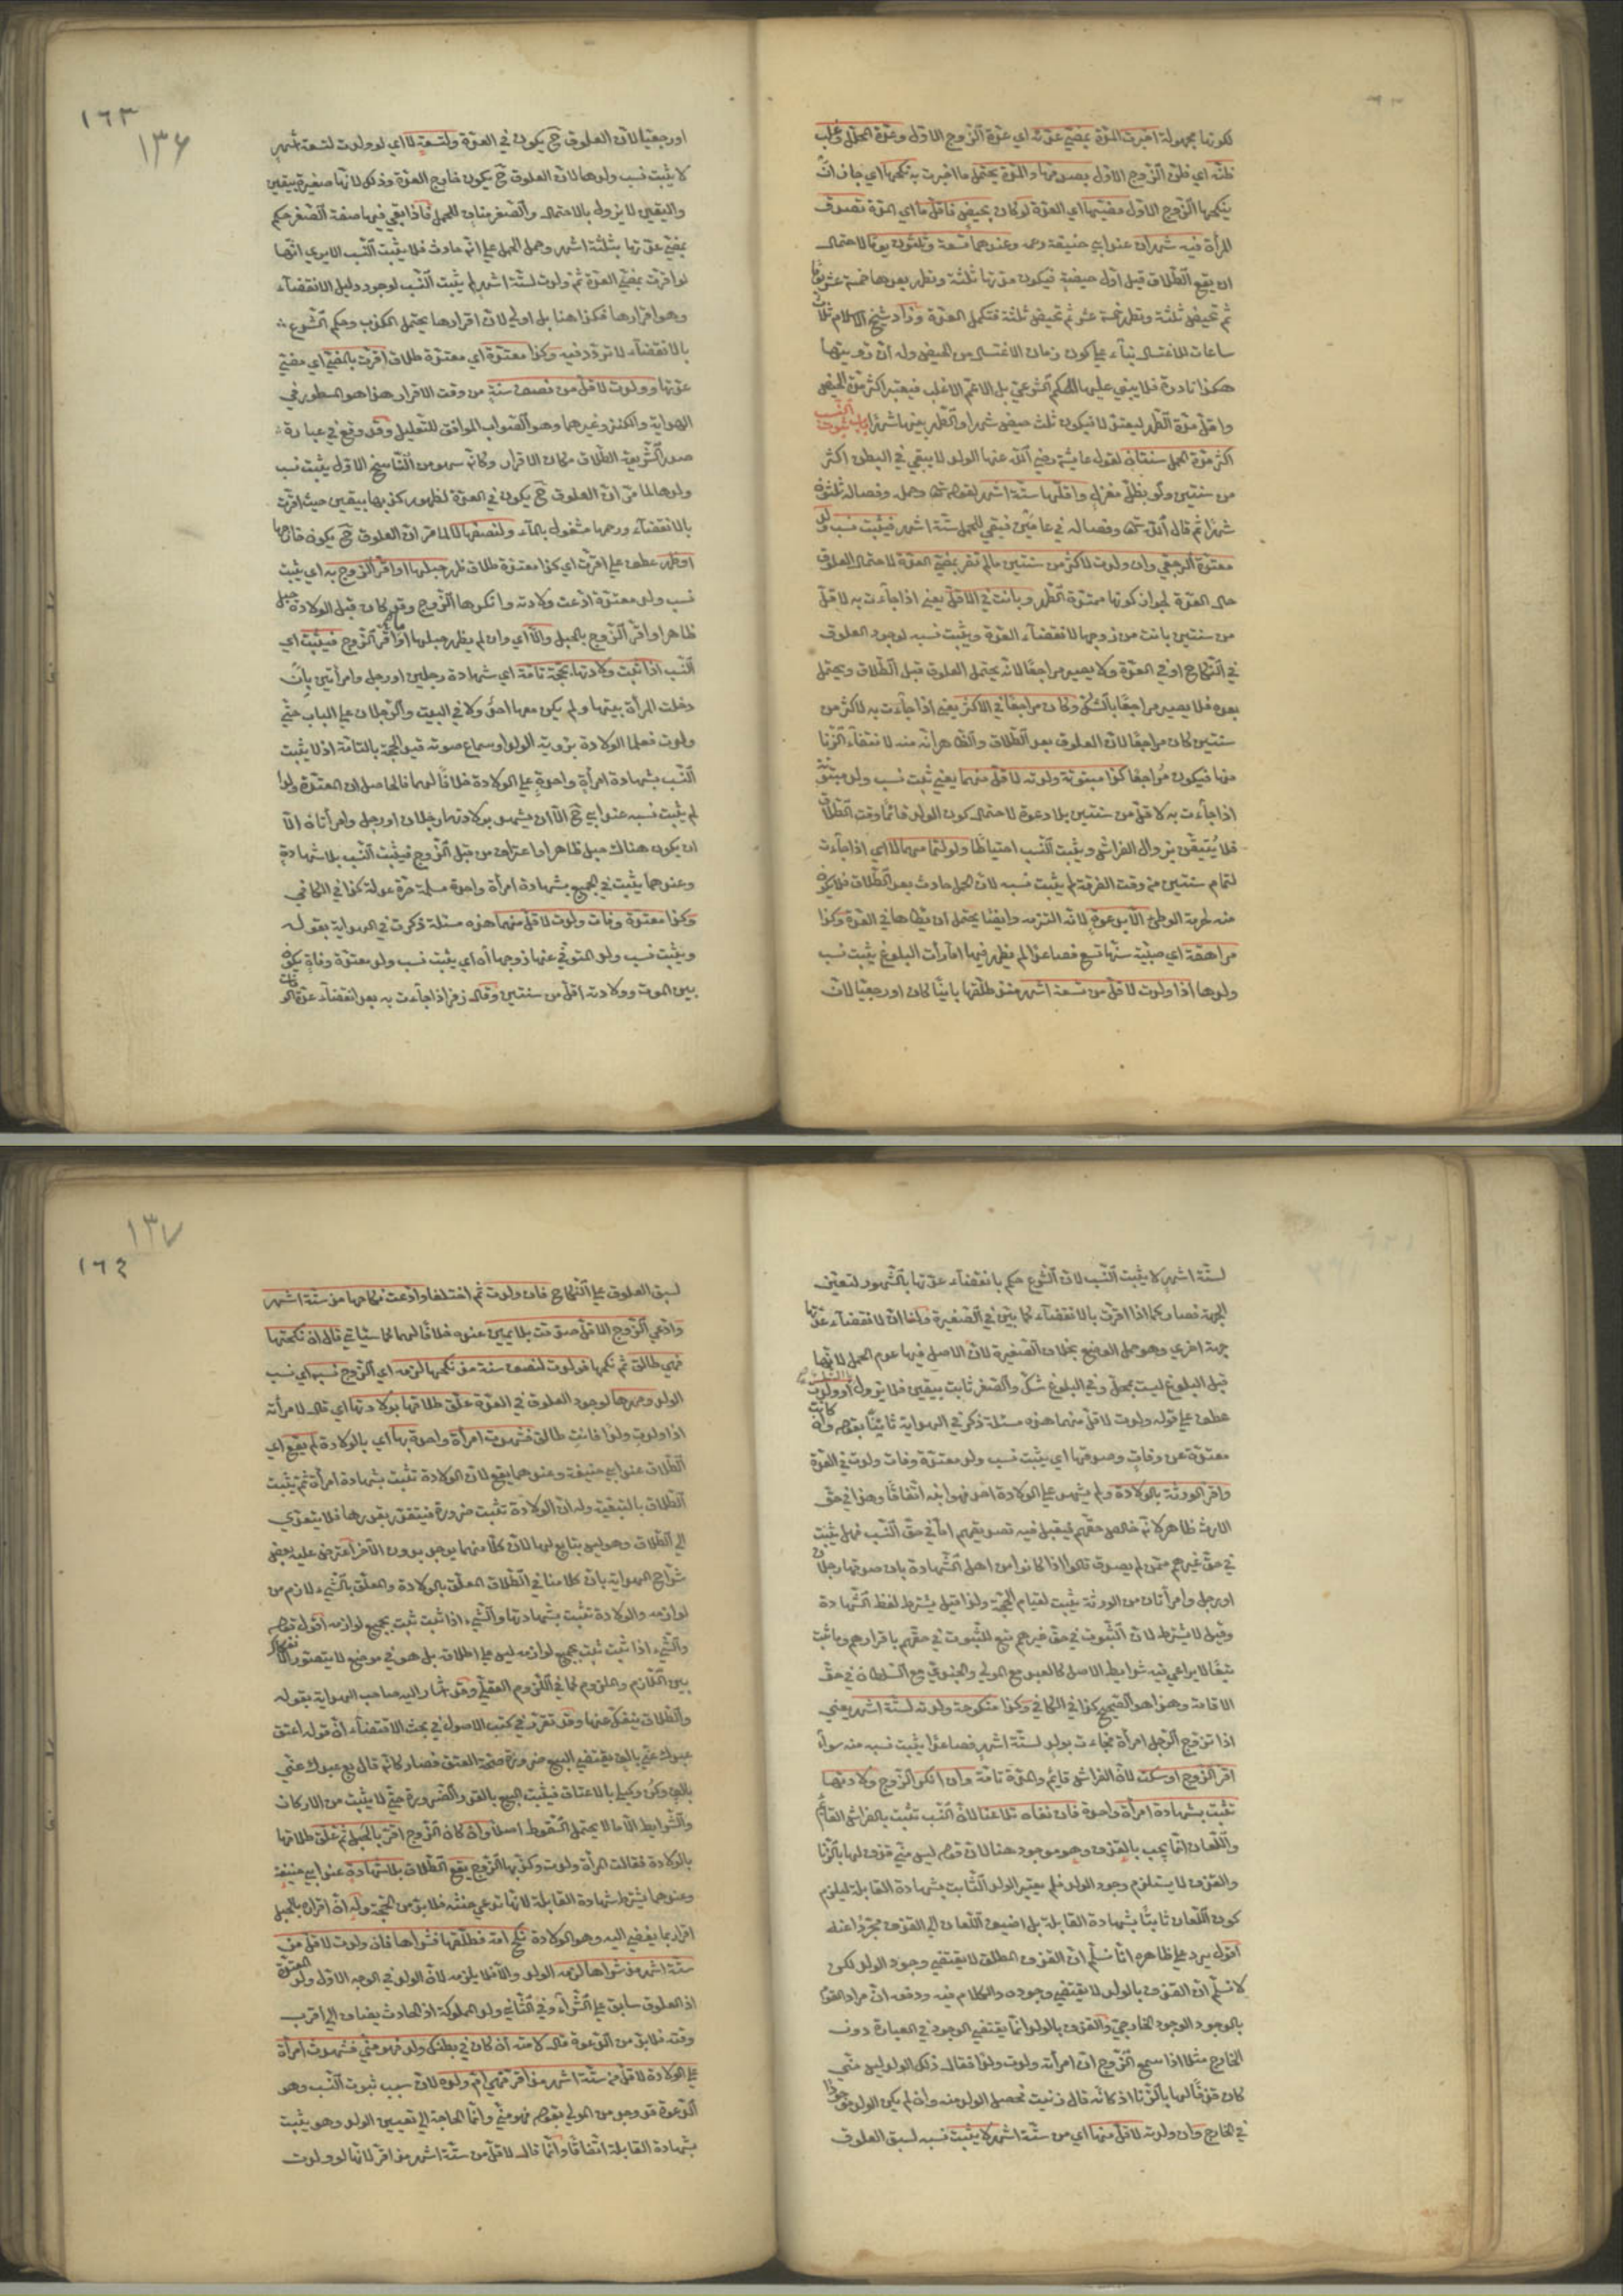 لكونها مجهولة اخبرت المدّة بمضيّ عدّته اي عدّة الزّوج الاوّل وعدّة المحلّل وغلب
ظنّه اي ظنّ الزّوج الاوّل بصدقها والمدّة يحتمل ما اخبرت به نكحها اي جاز ان
ينكحها الزّوج الاوّل مضيّها اي العدّة لو كان بحيض فاقلّ ما اي المدّة تصدق
المرأة فيه شهران عند ابي حنيفة رحمه وعندهما تسعة وثلثون يوما لاحتمال
ان يقع الطّلاق قبل اوّل حيضة فيكون مدّتها ثلثة وتطهر بعدها خمسة عشر يوما
ثم تحيض ثلثة وتطهر خمسة عشر ثم تحيض ثلثة فتكمل العدّة وزاد شيخ الاسلام ثلاث
ساعات للاغتسال بناء على كون زمان الاغتسال من الحيض وله ان رؤيتها
هكذا نادرة فلا يبنى عليها الحكم الشّرعيّ بل الاعمّ الاغلب فيعتبر اكثر مدّة الحيض
واقلّ مدّة الطّهر ليعتدلا فيكون ثلث حيض شهرا والطّهر بينها شهرا باب ثبوت النسب
اكثر مدّة الحمل سنتان لقول عايشة رضي الله عنها الولد لا يبقى في البطن اكثر
من سنتين ولو بظلّ مغزل واقلّها ستّة اشهر لقوله تعالى وحمله وفصاله ثلثون
شهرا ثم قال الله تعالى وفصاله في عامين فبقي للحمل ستّة اشهر فيثبت نسب ولد
معتدّة الرجعي وان ولدت لاكثر من سنتين ما لم تقر بمضيّ العدّة لاحتمال العلوق
حال العدّة لجواز كونها ممتدّة الطّهر وبانت في الاقلّ يعني اذا جاءت به لاقلّ
من سنتين بانت من زوجها لانقضاء العدّة ويثبت نسبه لوجود العلوق
في النّكاح او في العدّة ولا يصير مراجعا لانّه يحتمل العلوق قبل الطّلاق ويحتمل
بعده فلا يصير مراجعا بالشّك وكان مراجعا في الاكثر يعني اذا جاءت به لاكثر من
سنتين كان مراجعا لانّ العلوق بعد الطّلاق والظاهر انّه منه لانتفاء الزّنا
منها فيكون مراجعا كذا مبتوتة ولدته لاقلّ منهما يعني يثبت نسب ولد مبتوتة
اذا جاءت به لاقلّ من سنتين بلا دعوة لاحتمال كون الولد قائما وقت الطّلاق
فلا يُتيقّن بزوال الفراش ويثبت النّسب احتياطا ولو لتمامهما لا اي اذا جاءت
لتمام سنتين من وقت الفرقة لم يثبت نسبه لانّ الحمل حادث بعد الطّلاق فلا يكون
منه لحرمة الوطئ الّا بدعوة لانّه التزمه وايضا يحتمل ان يطأها في العدّة وكذا
مراهقة اي صبيّة سنّها تسع فصاعدا لم يظهر فيها امارات البلوغ يثبت نسب
ولدها اذا ولدت لاقلّ من تسعة اشهر منذ طلّقها بائنا كان او رجعيا لانّ
١٦٣
١٣٦
او رجعيّا لانّ العلوق ح يكون في العدّة ولتسعة لا اي لو ولدت لتسعة اشهر
لا يثبت نسب ولدها لانّ العلوق ح يكون خارج العدّة وذلك لانّها صغيرة بيقين
واليقين لا يزول بالاحتمال والصّغر مناف للحمل فاذا بقي فيها صفة الصّغر حكم
بمضيّ عدّتها بثلثة اشهر وحمل الحمل على انّه حادث فلا يثبت النّسب الا يرى انّها
لو اقرّت بمضيّ العدّة ثمّ ولدت لستّة اشهر لم يثبت النّسب لوجود دليل الانقضاء
وهو اقرارها فكذا هنا بل اولى لانّ اقرارها يحتمل الكذب وحكم الشّرع
بالانقضاء لا تردّد فيه وكذا معتدّة اي معتدّة طلاق اقرّت بالمضيّ اي مضيّ
عدّتها وولدت لاقلّ من نصف سنة من وقت الاقرار هذا هو المسطور في
الهداية والكنز وغيرهما وهو الصّواب الموافق للتعليل وقد وقع في عبارة
صدر الشّريعة الطّلاق مكان الاقرار وكانّه سهو من النّاسخ الاوّل يثبت نسب
ولدها لما مرّ انّ العلوق ح يكون في العدّة لظهور كذبها بيقين حيث اقرّت
بالانقضاء ورحمها مشغول بالماء ولنصفها لا لما مر انّ العلوق ح يكون خارجها
او ظهر عطف على اقرّت اي كذا معتدّة طلاق ظهر حبلها او اقرّ الزوج به اي يثبت
نسب ولد معتدّة ادّعت ولادته وانكرها الزّوج وقد كان قبل الولادة حبل
ظاهرا او اقرّ الزّوج بالحبل والّا اي وان لم يظهر حبلها او ما اقرّ الزّوج فيثبت اي
النّسب اذا ثبت ولادتها بحجّة تامّة اي شهادة رجلين او رجل وامرأتين بان
دخلت المرأة بيتها ولم يكن معها احد ولا في البيت والرّجلان على الباب حتّى
ولدت فعلما الولادة برؤية الولد او سماع صوته قيد الحجّة بالتامّة اذ لا يثبت
النّسب بشهادة امرأة واحدة على الولادة خلافا لهما فالحاصل ان المعتدّة ولدا
لم يثبت نسبه عند ابي ح الّا ان يشهد بولادتها رجلان او رجل وامرأتان الّا
ان يكون هناك حبل ظاهر او اعتراف من قبل الزّوج فيثبت النّسب بلا شهادة
وعندهما يثبت في الجميع بشهادة امرأة واحدة مسلمة حرّة عدلة كذا في الكافي
وكذا معتدة وفات ولدت لاقلّ منهما هذه مسئلة ذكرت في الهداية بقوله
ويثبت نسب ولد المتوفّى عنها زوجها اه اي يثبت نسب ولد معتدّة وفاة يكون
بين الموت وولادته اقلّ من سنتين وقال زفر اذا جاءت به بعد انقضاء عدّة الوفات
لستّة اشهر لا يثبت النّسب لانّ الشّرع حكم بانقضاء عدّتها بالشّهور لتعيّن
الجهة فصار كما اذا اقرّت بالانقضاء كما بيّن في الصّغيرة ولنا ان لانقضاء عدّتها
جهة اخرى وهو حمل الوضع بخلاف الصّغيرة لانّ الاصل فيها عدم الحمل لانّها
قبل البلوغ ليست بمحلّ وفي البلوغ شكّ والصّغر ثابت بيقين فلا يزول او ولدت
عطف على قوله ولدت لاقلّ منهما هذه مسئلة ذكر في الهداية ثانيا بقوله وان كانت
معتدّة عن وفات وصدقها اي يثبت نسب ولد معتدّة وفات ولدت في العدّة
واقر الورثة بالولادة ولم يشهد على الولادة احد فهو ابنه اتّفاقا وهذا في حق
الارث ظاهر لانّه خالص حقّهم فيقبل فيه تصديقهم امّا في حقّ النّسب فهل يثبت
في حقّ غيرهم ممّن لم يصدق قالوا اذا كانوا من اهل الشّهادة بان صدقها رجلان
او رجل وامرأتان من الورثة يثبت لقيام الحجّة ولذا قيل يشترط لفظ الشّهادة
وقيل لا يشترط لانّ الثّبوت في حقّ غيرهم تبع للثّبوت في حقّهم باقرارهم وما ثبت
تبعا لا يراعى فيه شرايط الاصل كالعبد مع المولى والجنديّ مع السّلطان في حقّ
الاقامة وهذا هو الصّحيح كذا في الكافي وكذا منكوحة ولدته لستّة اشهر يعني
اذا تزوّج الرّجل امرأة فجاءت بولد لستّة اشهر فصاعدا يثبت نسبه منه سواء
اقر الزّوج او سكت لانّ الفراش قائم والمدّة تامّة وان انكر الزّوج ولادتها
تثبت بشهادة امرأة واحدة فان نفاه تلاعنا لانّ النّسب تثبت بالفراش القائم
واللّعان انّما يجب بالقذف وهو موجود هنا لانّ قوله ليس منّي قذف لها بالزّنا
والقذف لا يستلزم وجود الولد فلم يعتبر الولد الثّابت بشهادة القابلة ليلزم
كون اللّعان ثابتا بشهادة القابلة بل اضيف اللّعان الى القذف مجرّدا عنه
اقول يرد على ظاهره انّا نسلّم انّ القذف المطلق لا يقتضي وجود الولد لكن
لا نسلّم انّ القذف بالولد لا يقتضي وجوده والكلام فيه ودفعه انّ مراد القوم
بالوجود الوجود الخارجيّ والقذف بالولد انّما يقتضي الوجود في العبارة دون
الخارج مثلا اذا سمع الزّوج ان امرأته ولدت ولدا فقال ذلك الولد ليس منّي
كان قذفا لها بالزّنا اذ كانّه قال زنيت فحصل الولد منه وان لم يكن الولد موجودا
في الخارج وان ولدته لاقلّ منها اي من ستّة اشهر لا يثبت نسبه لسبق العلوق
١٣٧
١٦٤
لسبق العلوق على النّكاح فان ولدت ثم اختلفا وادّعت نكاحها من ستّة اشهر
وادّعى الزّوج الاقلّ صدّقت بلا يمين عنده خلافا لهما لما سيأتي قال ان نكحتها
فهي طالق ثم نكحها فولدت لنصف سنة منذ نكحها لزمه اي الزّوج نسبه اي نسب
الولد ومهرها لوجود العلوق في العدّة علّق طلاقها بولادتها اي قال لامرأته
اذا ولدت ولدا فانت طالق فشهدت امرأة واحدة بها اي بالولادة لم يقع اي
الطّلاق عند ابي حنيفة وعندهما يقع لانّ الولادة تثبت بشهادة امرأة ثم يثبت
الطّلاق بالتبعيّة وله انّ الولادة تثبت ضرورة فيتقدّر بقدرها فلا يتعدّى
الى الطّلاق وهو ليس بتابع لها لانّ كلّا منهما يوجد بدون الآخر اعترض عليه بعض
شرّاح الهداية بانّ كلامنا في الطّلاق المعلّق بالولادة والمعلّق بالشّيء لازم من
لوازمه والولادة تثبت بشهادتها والشّيء اذا ثبت ثبت بجميع لوازمه اقول قوله
والشّيء اذا ثبت ثبت بجميع لوازمه ليس على اطلاقه بل هو في موضع لا يتصوّر الانفكاك
بين اللّازم والملزوم كما في اللّزوم العقليّ وقد اشار اليه صاحب الهداية بقوله
والطّلاق ينفكّ عنها وقد تقرّر في كتب الاصول في بحث الاقتضاء انّ قوله اعتق
عبدك عنّي بالف يقتضي البيع ضرورة صحّة العتق فصار كانّه قال بع عبدك عنّي
بالف وكن وكيلي بالاعتاق فيثبت البيع بالقدر الضّرورة حتّى لا يثبت من الاركان
والشّرايط الّا ما لا يحتمل السّقوط اصلا وان كان الزّوج اقرّ بالحبل ثم علّق طلاقها
بالولادة فقالت المرأة ولدت وكذّبها الزّوج يقع الطّلاق بلا شهادة عند ابي حنيفة
وعندهما يشترط شهادة القابلة لانّها تدعي حنثه فلا بدّ من الحجّة وله انّ اقراره بالحبل
اقرار بما يفضي اليه وهو الولادة نكح امة فطلّقها فشراها فان ولدت لاقلّ من
ستّة اشهر منذ شراها لزمه الولد والّا فلا يلزمه لانّ الولد في الوجه الاوّل ولد المعتدّة
اذ العلوق سابق على الشّراء وفي الثّاني ولد المملوكة اذ الحادث يضاف الى اقرب
وقته فلا بدّ من الدّعوة قال لامته ان كان في بطنك ولد فهو منّي فشهدت امرأة
على الولادة لاقلّ من ستّة اشهر منذ اقرّ فهي امّ ولده لانّ سبب ثبوت النّسب وهو
الدّعوة قد وجد من المولى بقوله فهو منّي وانّما الحاجة الى تعيين الولد وهو يثبت
بشهادة القابلة اتّفاقا وانّما قال لاقلّ من ستّة اشهر منذ اقرّ لانّها لو ولدت